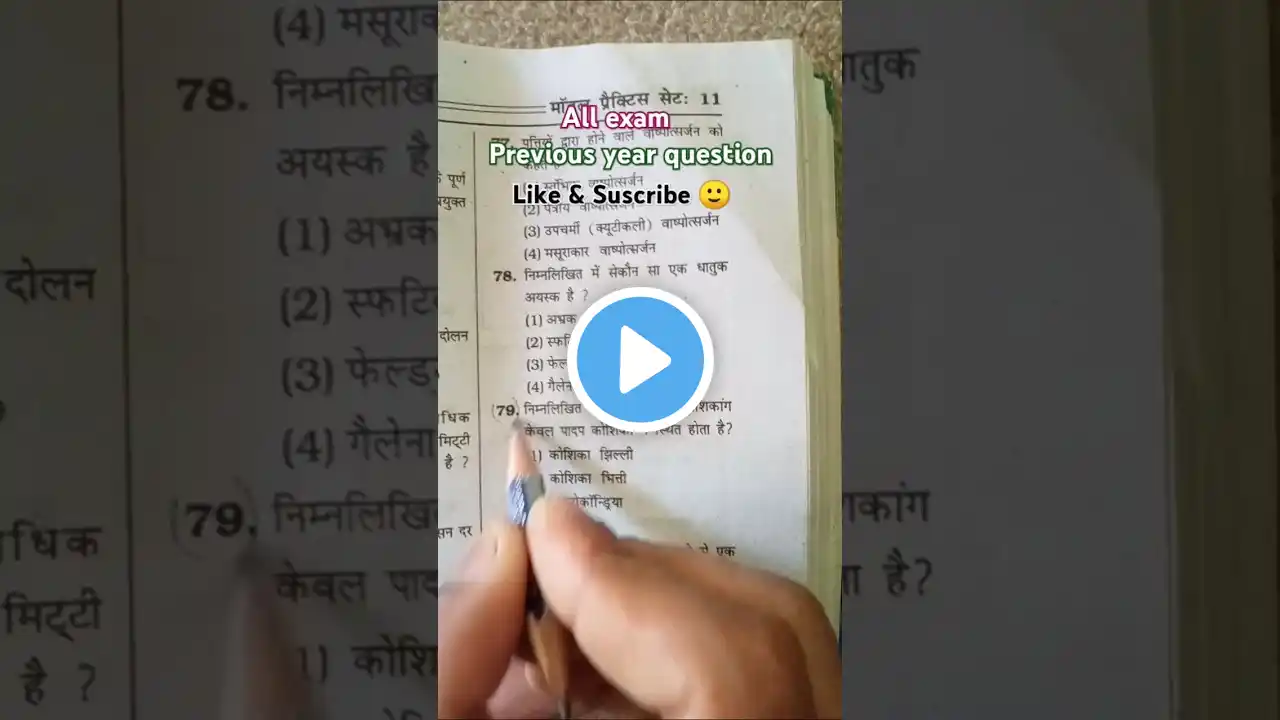 मॉडल प्रैक्टिस सेट: 11
All exam
77. पत्तियों द्वारा होने वाले वाष्पोत्सर्जन को
Previous year question
वाष्पोत्सर्जन
Like & Suscribe 🙂
(2) पत्रीय वाष्पोत्सर्जन
(3) उपचर्मी (क्यूटीकली) वाष्पोत्सर्जन
(4) मसूराकार वाष्पोत्सर्जन
78. निम्नलिखित में सेकौन सा एक धातुक
अयस्क है ?
(1) अभ्रक
(2) स्फटि
(3) फेल्ड
(4) गैलेना
(79. निम्नलिखित
केवल पादप कोशिका स्थित होता है?
1) कोशिका झिल्ली
कोशिका भित्ती
ोकॉन्ड्रिया
में से एक
पूर्ण
युक्त
दोलन
धिक
मिट्टी
है ?
सन दर